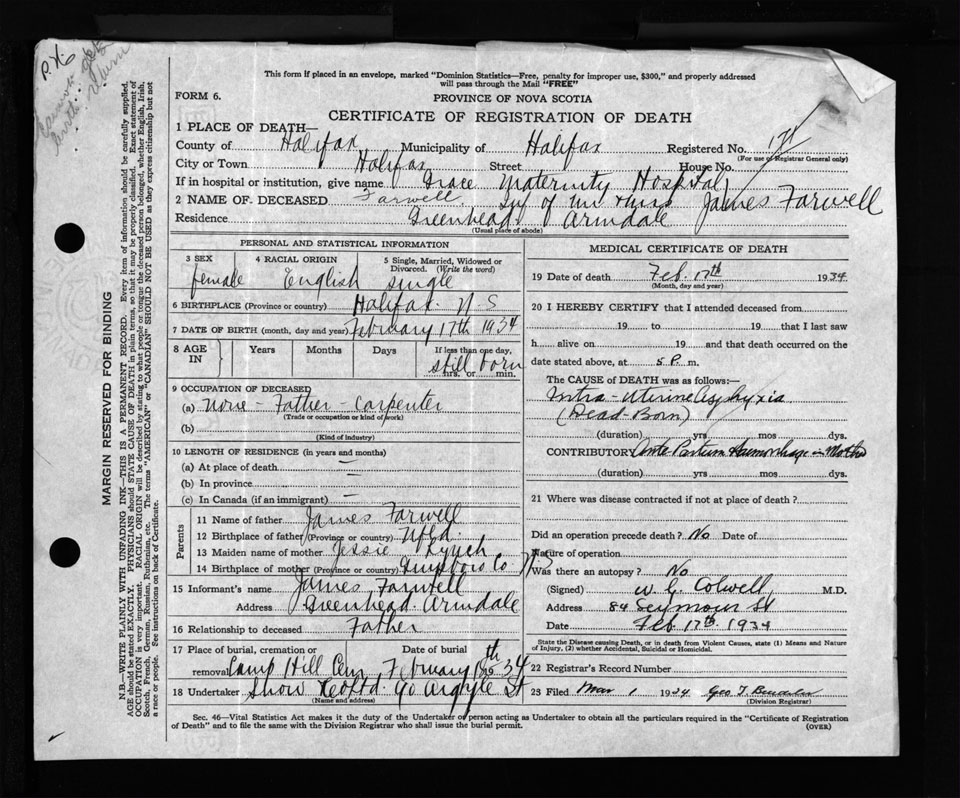 P.X6.
This form if placed in an envelope, marked "Dominion Statistics—Free, penalty for improper use, $300," and properly addressed
will pass through the Mail "FREE"
FORM 6.
PROVINCE OF NOVA SCOTIA
CERTIFICATE OF REGISTRATION OF DEATH
1 PLACE OF DEATH—
County of Halifax Municipality of Halifax Registered No.
(For use of Registrar General only)
City or Town Halifax Street House No.
If in hospital or institution, give name Grace Maternity Hospital
2 NAME OF DECEASED Farwell Inf of Mr & Mrs James Farwell
Residence Greenhead Armdale
(Usual place of abode)
PERSONAL AND STATISTICAL INFORMATION
3 SEX 4 RACIAL ORIGIN 5 Single, Married, Widowed or Divorced. (Write the word)
female English single
6 BIRTHPLACE (Province or county) Halifax N.S
7 DATE OF BIRTH (month, day and year) February 17th 1934
8 AGE IN Years Months Days If less than one day, hrs. or min.
still born
9 OCCUPATION OF DECEASED
(a) None - Father - Carpenter
(Trade or occupation or kind of work)
(b)
(Kind of industry)
10 LENGTH OF RESIDENCE (in years and months)
(a) At place of death —
(b) In province —
(c) In Canada (if an immigrant) —
Parents
11 Name of father James Farwell
12 Birthplace of father (Province or country) Nfld.
13 Maiden name of mother Jessie Lynch
14 Birthplace of mother (Province or country) Guysboro Co N.S
15 Informant's name James Farwell
Address Greenhead Armdale
16 Relationship to deceased Father
17 Place of burial, cremation or removal Date of burial
Camp Hill Cem February 18th 1934
18 Undertaker Snow & Co Ltd. 90 Argyle St
(Name and address)
MEDICAL CERTIFICATE OF DEATH
19 Date of death Feb. 17th 1934
(Month, day and year)
20 I HEREBY CERTIFY that I attended deceased from
19 to 19 that I last saw
h alive on 19 and that death occurred on the
date stated above, at 5 P. m.
The CAUSE OF DEATH was as follows:—
Intra-Uterine Asphyxia
(Dead-Born)
(duration) yrs mos dys.
CONTRIBUTORY Ante Partum Haemorrhage in Mother
(duration) yrs. mos. dys.
21 Where was disease contracted if not at place of death?
Did an operation precede death? No Date of
Nature of operation
Was there an autopsy? No
(Signed) W. G. Colwell, M.D.
Address 84 Seymour St
Date Feb. 17th 1934
State the Disease causing Death, or in death from Violent Causes, state (1) Means and Nature
of Injury, (2) whether Accidental, Suicidal or Homicidal.
22 Registrar's Record Number
23 Filed Mar 1 1934 Geo. T.
(Division Registrar)
Sec. 46—Vital Statistics Act makes it the duty of the Undertaker or person acting as Undertaker to obtain all the particulars required in the "Certificate of Registration
of Death" and to file the same with the Division Registrar who shall issue the burial permit.
(OVER)
MARGIN RESERVED FOR BINDING
N.B.—WRITE PLAINLY WITH UNFADING INK—THIS IS A PERMANENT RECORD. Every item of information should be carefully supplied.
AGE should be stated EXACTLY. PHYSICIANS should STATE CAUSE OF DEATH in plain terms, so that it may be properly classified. Exact statement of
OCCUPATION is very important. RACIAL ORIGIN will be described by stating to what people or tongue the deceased person belonged, whether English, Irish,
Scotch, French, German, Russian, Ruthenian, etc. The terms "AMERICAN" or "CANADIAN" SHOULD NOT BE USED as they express citizenship but not
a race or people. See instructions on back of Certificate.